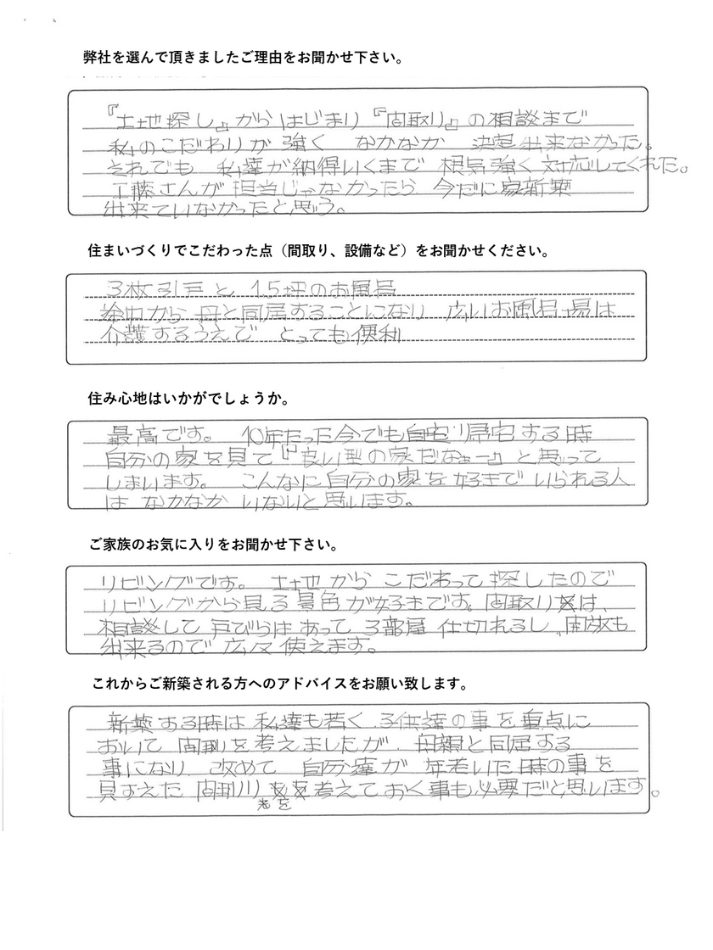 弊社を選んで頂きましたご理由をお聞かせ下さい。
『土地探し』からはじまり『間取り』の相談まで
私のこだわりが強く なかなか 決定出来なかった。
それでも 私達が納得いくまで 根気強く対応してくれた。
工藤さんが担当じゃなかったら 今だに家新築
出来ていなかったと思う。
住まいづくりでこだわった点（間取り、設備など）をお聞かせください。
3枚引戸と 1.5坪のお風呂
途中から 母と同居することになり 広いお風呂場は
介護するうえで とっても便利
住み心地はいかがでしょうか。
最高です。 10年たった今でも自宅り帰宅する時
自分の家を見て『良い型の家だなぁー』と思って
しまいます。 こんなに自分の家を好きでいられる人
は なかなか いないと思います。
ご家族のお気に入りをお聞かせ下さい。
リビングです。 土地から こだわって探したので
リビングから見る景色が好きです。間取りは、
相談して 戸びらは あって 3部屋 仕切れるし、開放も
出来るので 広々 使えます。
これからご新築される方へのアドバイスをお願い致します。
新築する時は 私達も若く、子供達の事を重点に
おいて 間取りを考えましたが、母親と同居する
事になり 改めて 自分達が 年老いた時の事を
見すえた 間取り を考えておく事も必要だと思います。